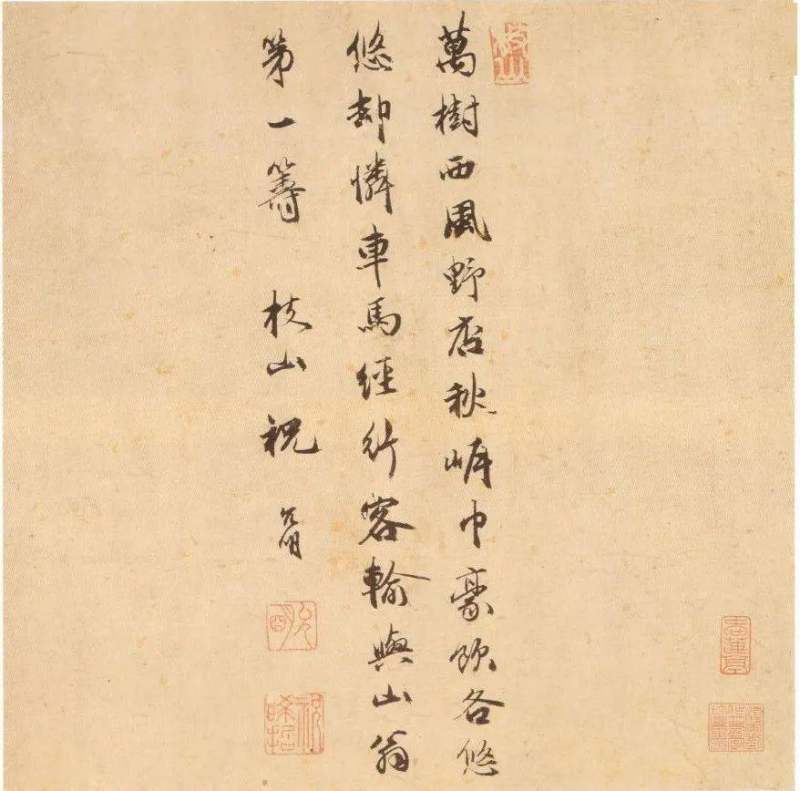 萬樹西風野店秋岸巾豪飲各悠
悠却憐車馬經行客輸與山翁
第一籌 枝山祝允明